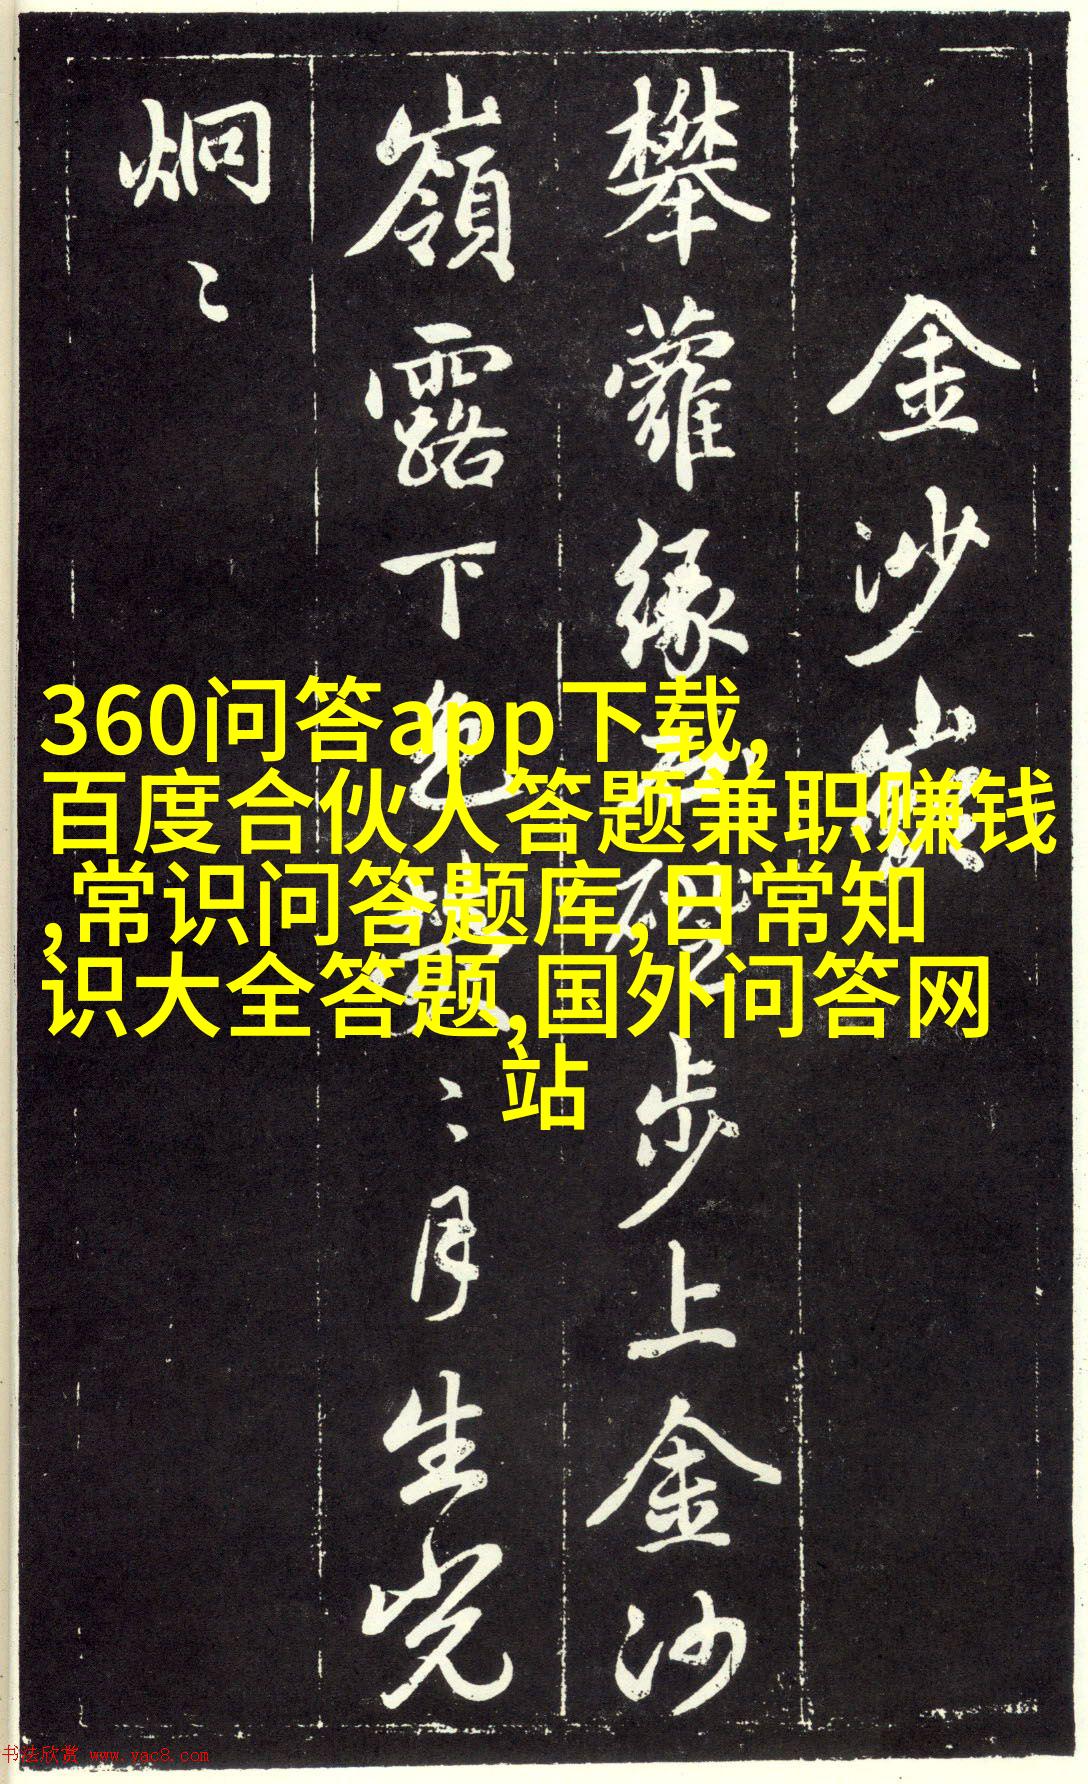 金沙
攀蘿緣磴步上金沙
嶺露下色〻月生光
炯〻
360问答app下载,
百度合伙人答题兼职赚钱
,常识问答题库,日常知
识大全答题,国外问答网
站
书法欣赏 www.yac8.com